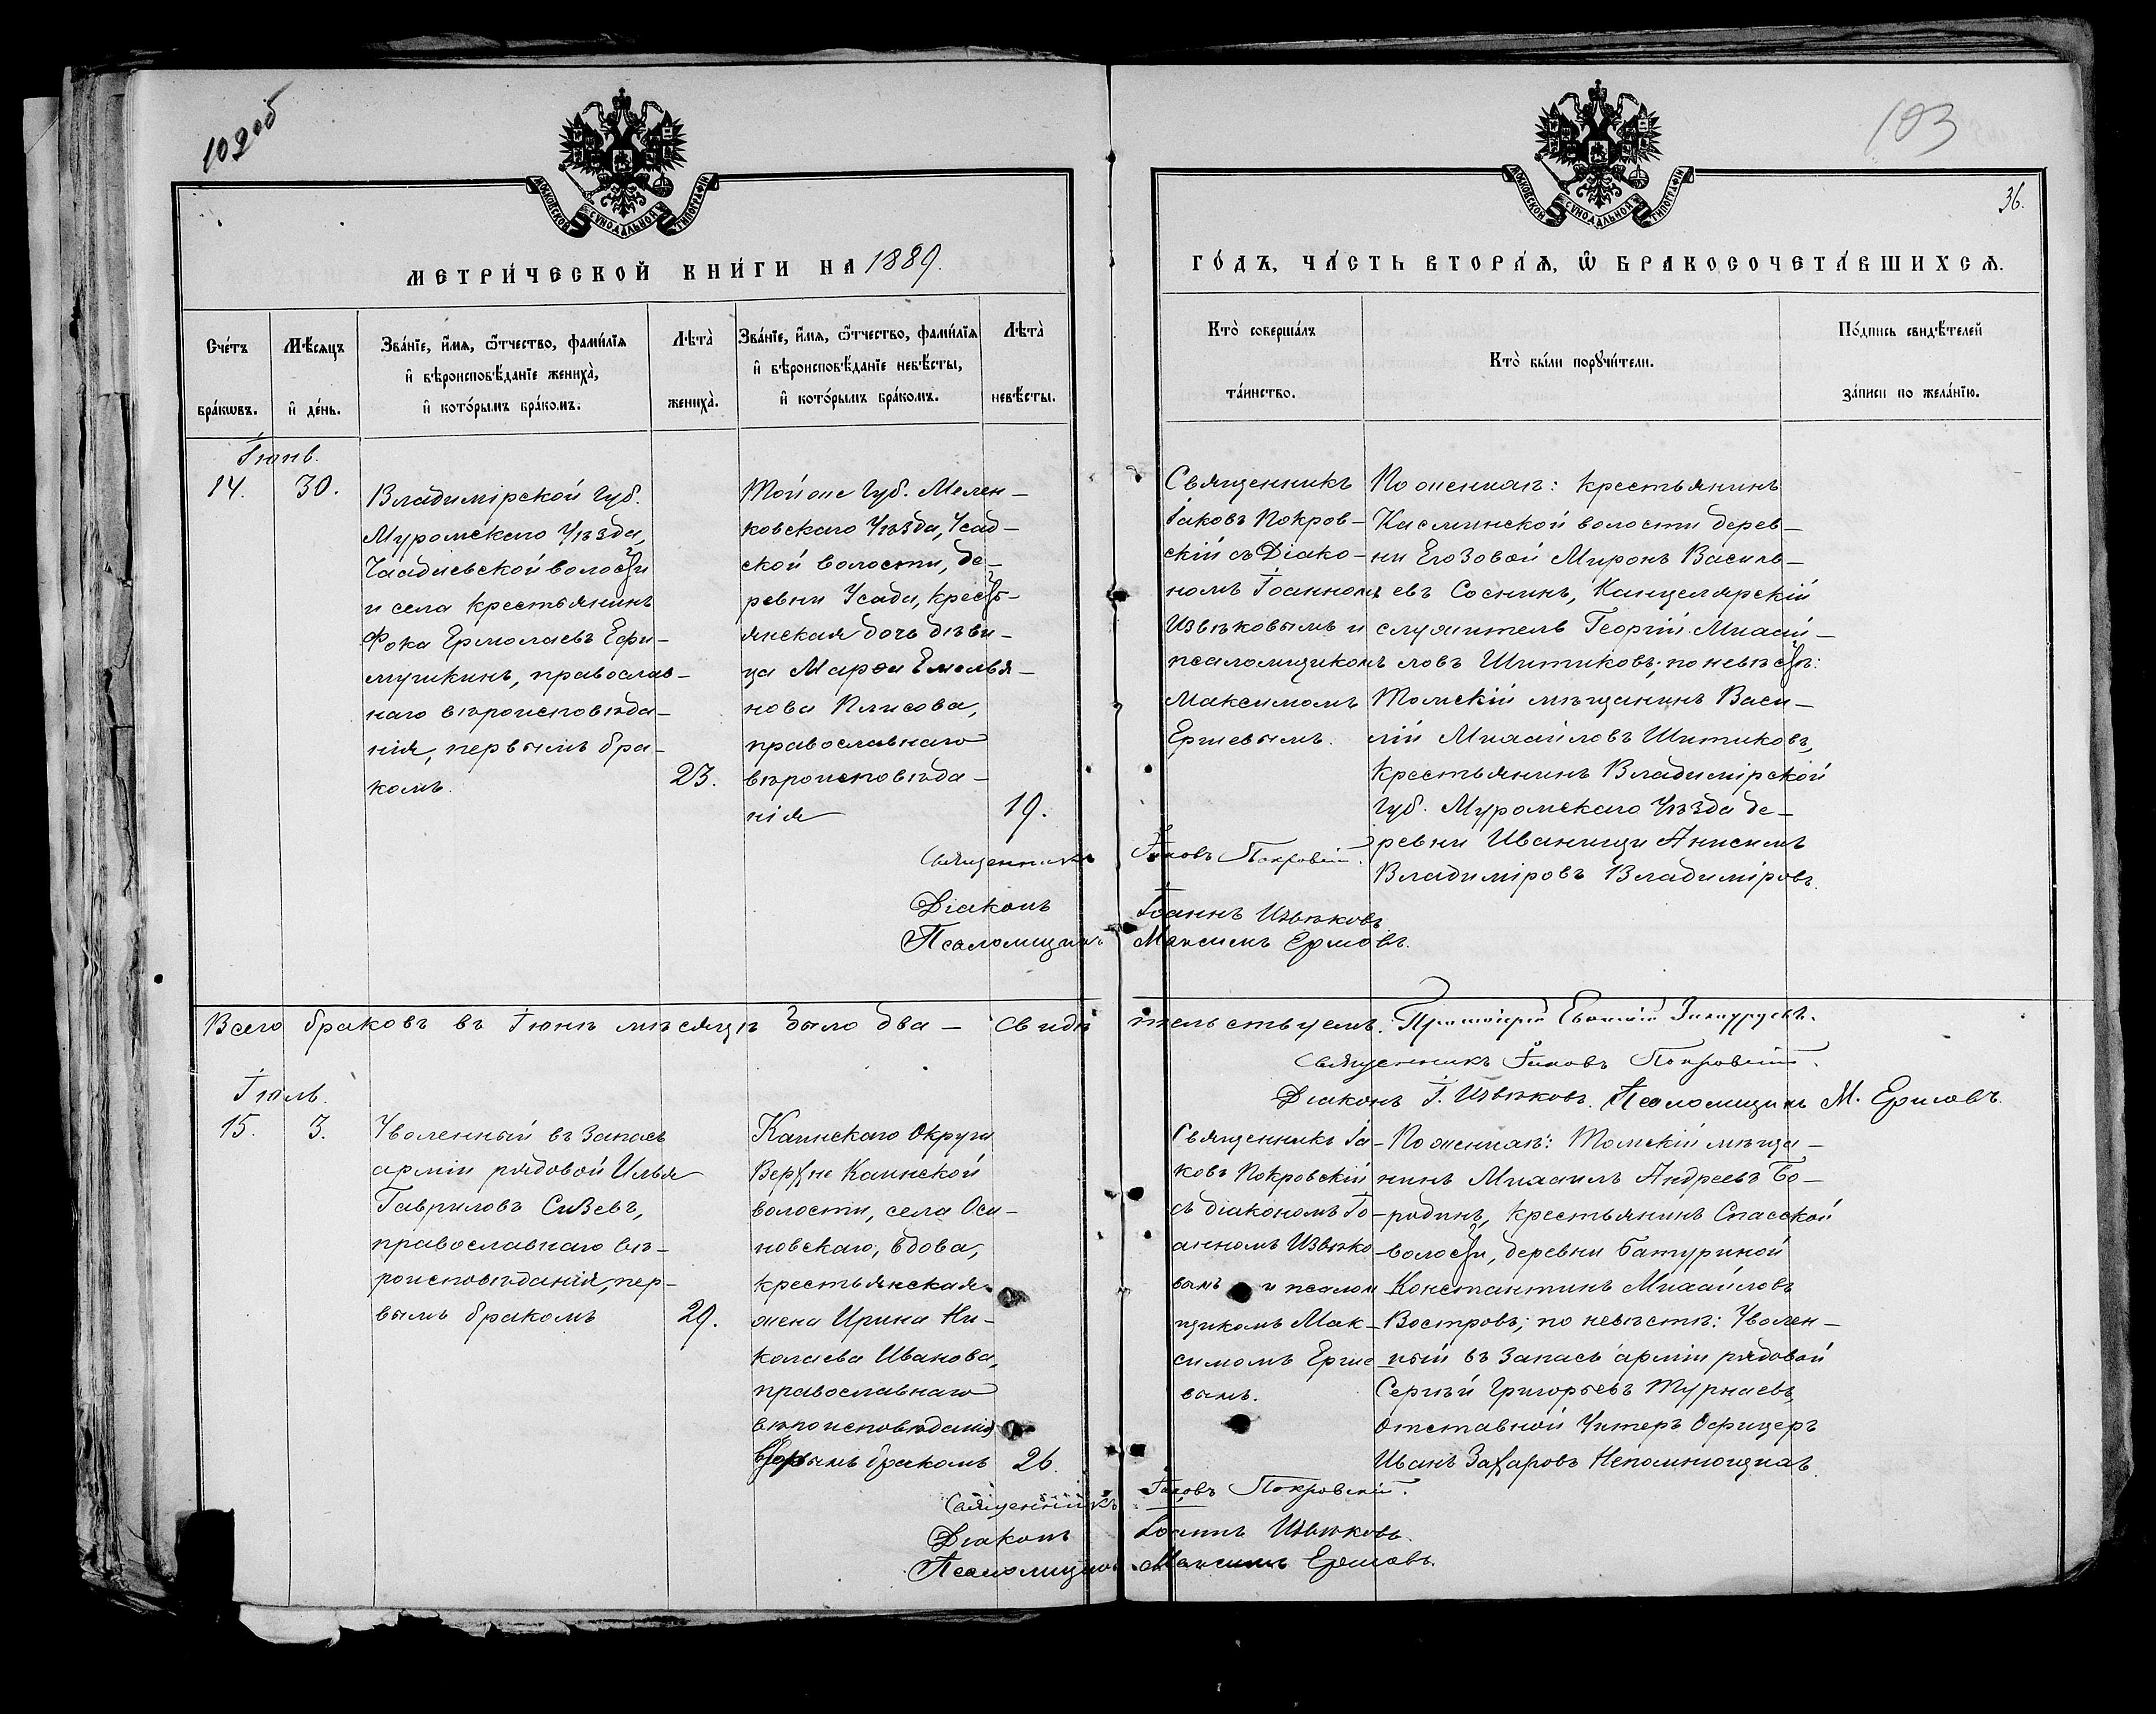 102об
103
36.
МОСКОВСКОЙ СѴНОДАЛЬНОЙ ТИПОГРАФІИ
МОСКОВСКОЙ СѴНОДАЛЬНОЙ ТИПОГРАФІИ
МЕТРИ́ЧЕСКОЙ КНИ́ГИ НА 1889.
ГО́ДЪ, ЧА́СТЬ ВТОРА́Ѧ, Ѿ БРАКОСОЧЕТА́ВШИХСѦ.
Сче́тъ
бра́кѡвъ.
Мѣ́сѧцъ
и҆ де́нь.
Зва́нїе, и҆́мѧ, ѻ҆́тчество, фами́лїѧ
и҆ вѣроисповѣ́данїе жениха̀,
и҆ кото́рымъ бра́комъ.
Лѣта̀
жениха̀.
Зва́нїе, и҆́мѧ, ѻ҆́тчество, фами́лїѧ
и҆ вѣроисповѣ́данїе невѣ́сты,
и҆ кото́рымъ бра́комъ.
Лѣта̀
невѣ́сты.
Кто̀ соверша́лъ
та́инство.
Кто̀ бы́ли порꙋчи́тели.
По́дпись свидѣ́телей
за́писи по жела́нїю.
Іюнь.
14.
30.
Владимірской Губ.
Муромскаго Уѣзда,
волости
и села крестьянинъ
Фока Ермолаевъ Ефи-
мушкинъ, православ-
наго вѣроисповѣда-
нія, первымъ бра-
комъ.
23.
Той же Губ. Мелен-
ковскаго Уѣзда, Усад-
ской волости, де-
ревни Усада, кресть-
янская дочь дѣви-
ца Марѳа Емелья-
нова Плисова,
православнаго
вѣроисповѣда-
нія
19.
Священникъ
Іаковъ Покров-
скій съ Діако-
номъ Іоанномъ
Извѣковымъ и
псаломщикомъ
Максимомъ
Ершевымъ.
По женихѣ: крестьянинъ
Касминской волости дерев-
ни Егозовой Миронъ Василь-
евъ Соснинъ, Канцелярскій
служитель Георгій Михай-
ловъ Шитиковъ; по невѣстѣ:
Томскій мѣщанинъ Васи-
лій Михайловъ Шитиковъ,
крестьянинъ Владимірской
Губ. Муромскаго Уѣзда де-
ревни Иваници Анисимъ
Владиміровъ Владиміровъ.
Священникъ Іаковъ Покровскій.
Діаконъ Іоаннъ Извѣковъ.
Псаломщикъ Максимъ Ершовъ.
Всего браковъ въ Іюнѣ мѣсяцѣ было два — Свидѣтельствуемъ. Протоіерей
Священникъ Іаковъ Покровскій.
Діаконъ І. Извѣковъ. Псаломщикъ М. Ершовъ.
Іюль.
15.
3.
Уволенный въ запасъ
арміи рядовой Илья
Гавриловъ Сизевъ,
православнаго вѣ-
роисповѣданія, пер-
вымъ бракомъ
29.
Каинскаго Округа
Верхне Каинской
волости, села Оси-
новскаго, вдова,
крестьянская
жена Ирина Ни-
колаева Иванова,
православнаго
вѣроисповѣданія
вторымъ бракомъ
26.
Священникъ Іа-
ковъ Покровскій
съ діакономъ Іо-
анномъ Извѣко-
вымъ и псалом-
щикомъ Мак-
симомъ Ерше-
вымъ.
По женихѣ: Томскій мѣща-
нинъ Михаилъ Андреевъ Бо-
родинъ, крестьянинъ Спасской
волости, деревни Батуриной
Константинъ Михайловъ
Востровъ; по невѣстѣ: Уволен-
ный въ запасъ арміи рядовой
Сергѣй Григорьевъ Турнаевъ,
отставной Унтеръ Офицеръ
Иванъ Захаровъ Непомнющихъ.
Священникъ Іаковъ Покровскій.
Діаконъ Іоаннъ Извѣковъ.
Псаломщикъ Максимъ Ершовъ.